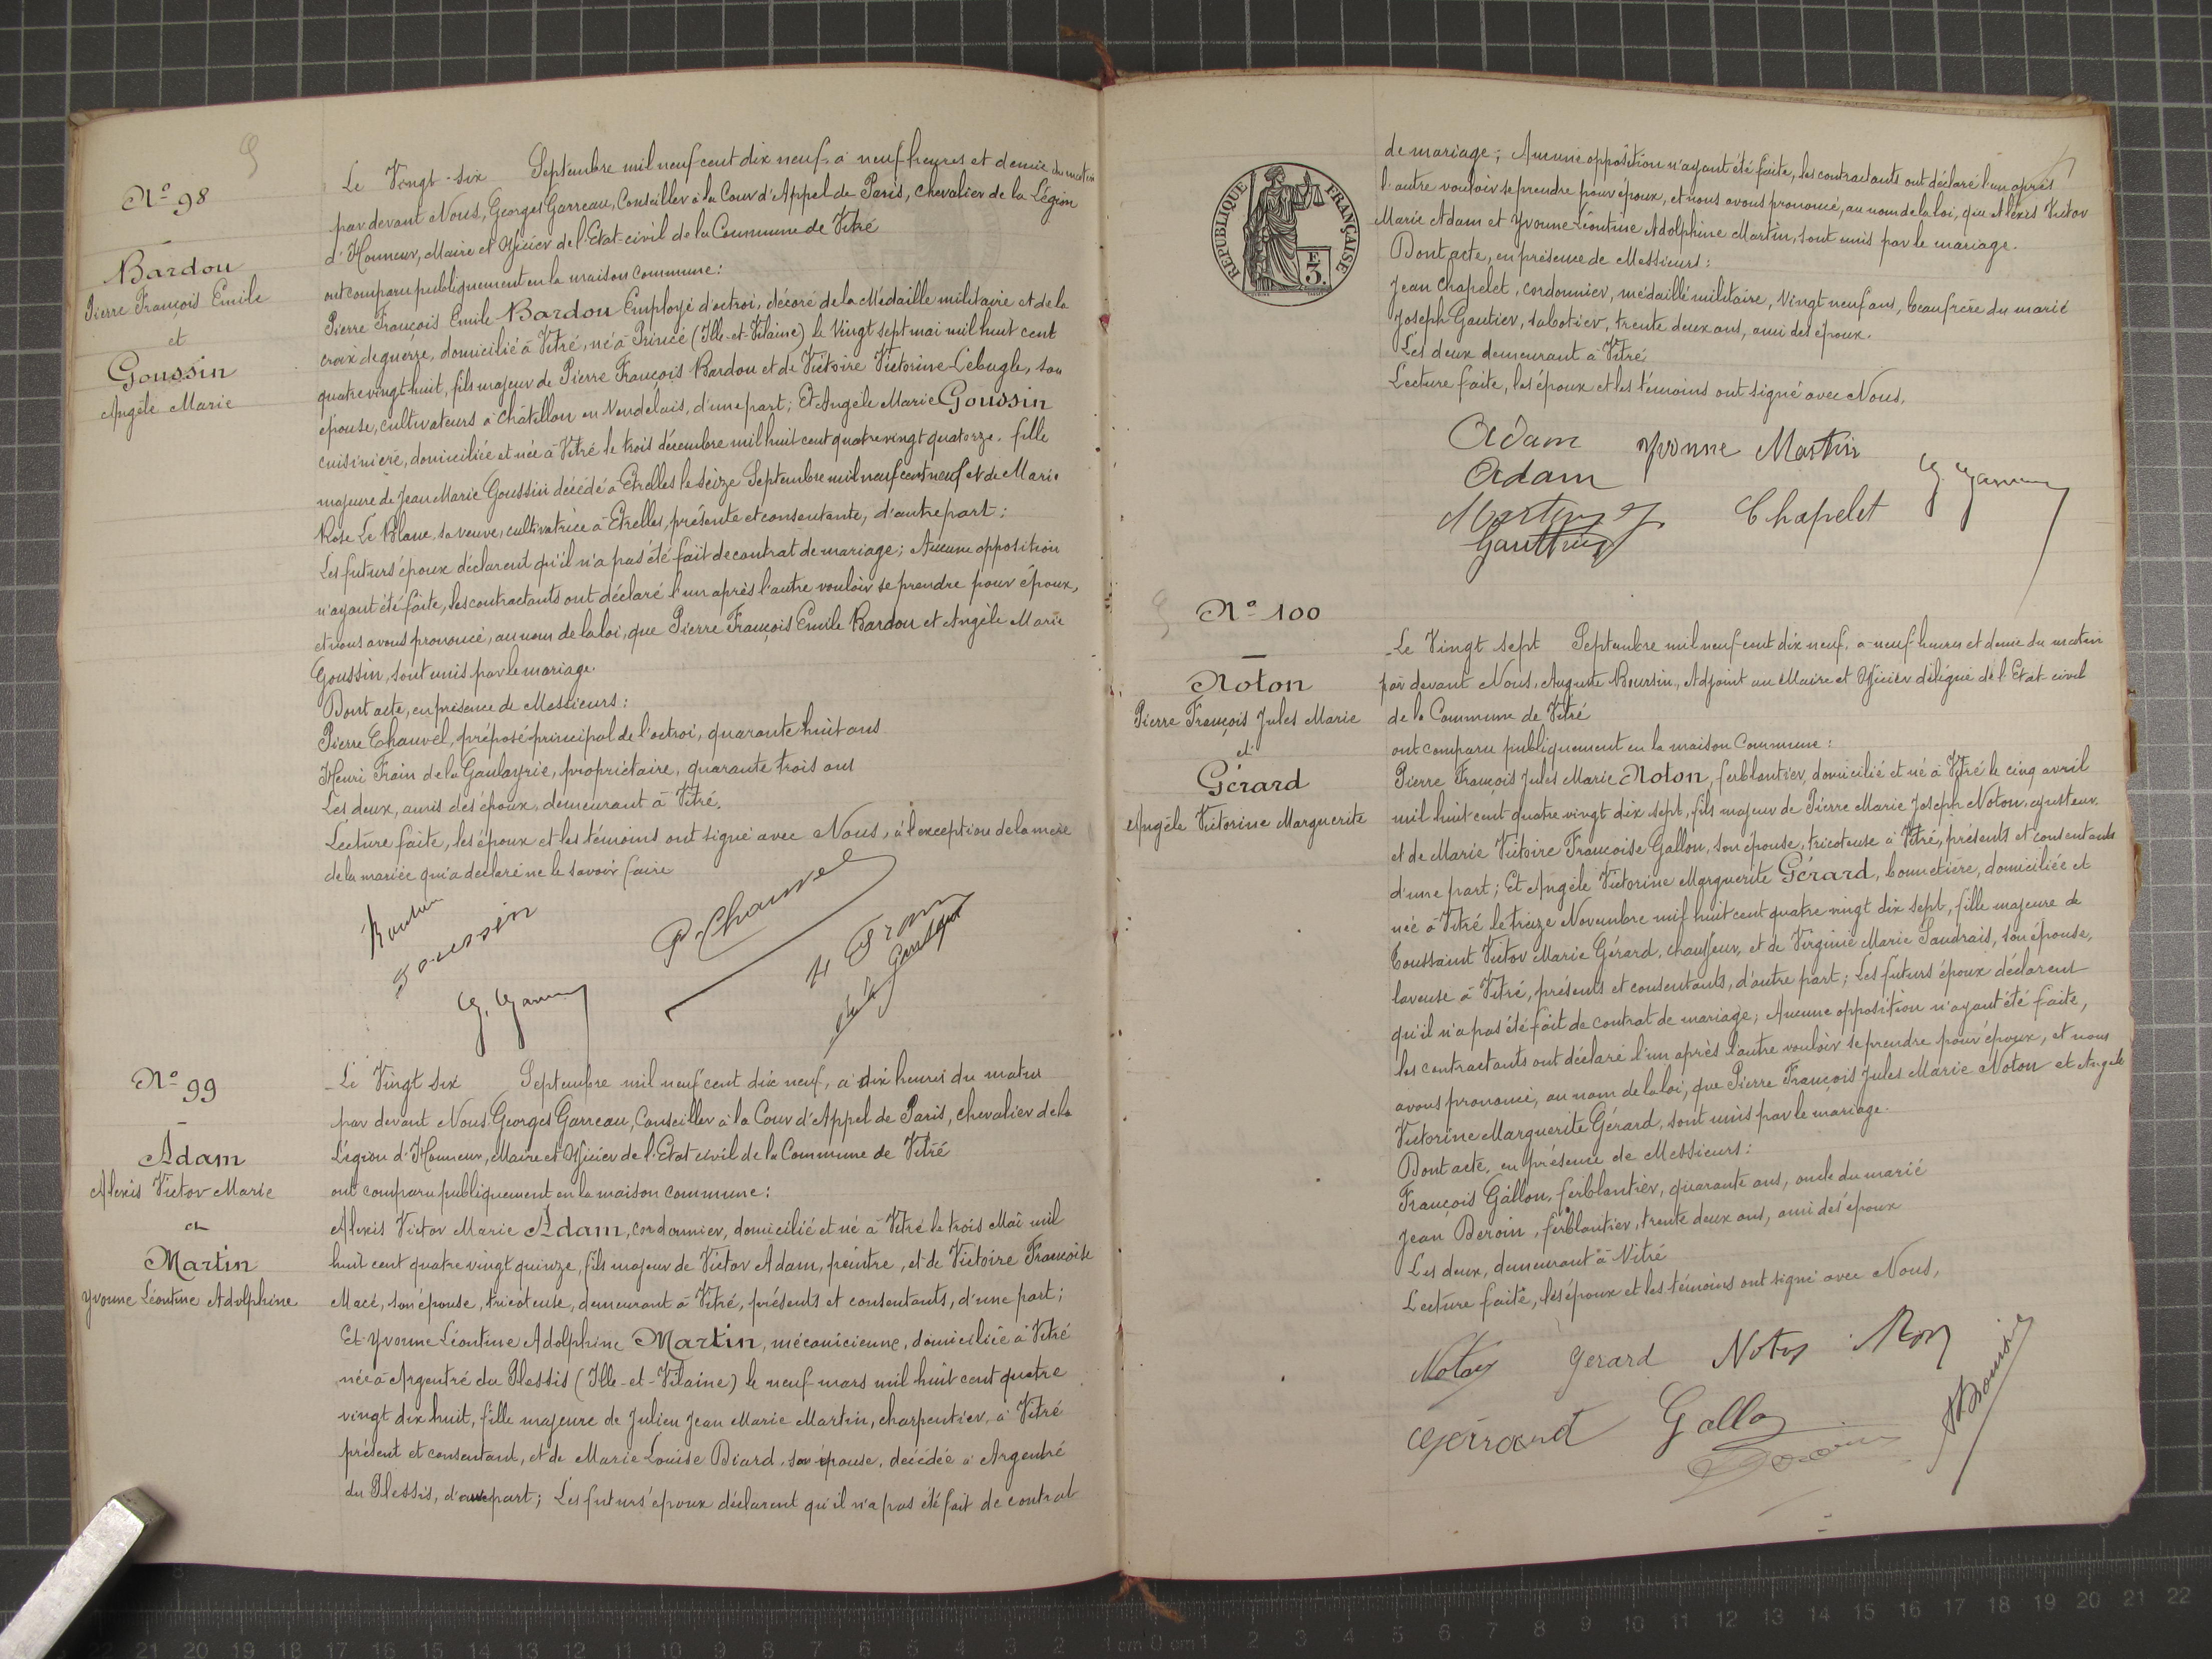 N° 98
Bardou
Pierre François Emile
et
Goussin
Angèle Marie
Le Vingt-six Septembre mil neuf cent dix neuf, à neuf heures et demie du matin
par devant Nous, Georges Garreau, Conseiller à la Cour d'Appel de Paris, Chevalier de la Légion
d'Honneur, Maire et Officier de l'Etat-civil de la Commune de Vitré
ont comparu publiquement en la maison commune:
Pierre François Emile Bardou Employé d'octroi, décoré de la Médaille militaire et de la
croix de guerre, domicilié à Vitré, né à Princé (Ille-et-Vilaine) le Vingt sept mai mil huit cent
quatre vingt huit, fils majeur de Pierre François Bardou et de Victoire Victorine Lebugle, son
épouse, cultivateurs à Châtillon en Vendelais, d'une part; Et Angèle Marie Goussin
cuisinière, domiciliée et née à Vitré le trois décembre mil huit cent quatre vingt quatorze, fille
majeure de Jean Marie Goussin décédé à Etrelles le seize Septembre mil neuf cent neuf et de Marie
Rose Le Blanc, sa veuve, cultivatrice à Etrelles, présente et consentante, d'autre part;
Les futurs époux déclarent qu'il n'a pas été fait de contrat de mariage; Aucune opposition
n'ayant été faite, les contractants ont déclaré l'un après l'autre vouloir se prendre pour époux,
et nous avons prononcé, au nom de la loi, que Pierre François Emile Bardou et Angèle Marie
Goussin, sont unis par le mariage.
Dont acte, en présence de Messieurs:
Pierre Chauvel, préposé principal de l'octroi, quarante huit ans
Henri Frain de la Gaulayrie, propriétaire, quarante trois ans
Les deux, amis des époux, demeurant à Vitré.
Lecture faite, les époux et les témoins ont signé avec Nous, à l'exception de la mère
de la mariée qui a déclaré ne le savoir faire
Goussin
P. Chauvel
H Frain
G. Garreau
N° 99
Adam
Alexis Victor Marie
et
Martin
Yvonne Léontine Adolphine
Le Vingt six Septembre mil neuf cent dix neuf, à dix heures du matin
par devant Nous Georges Garreau, Conseiller à la Cour d'Appel de Paris, chevalier de la
Légion d'Honneur, Maire et Officier de l'Etat civil de la Commune de Vitré
ont comparu publiquement en la maison commune:
Alexis Victor Marie Adam, cordonnier, domicilié et né à Vitré le trois Mai mil
huit cent quatre vingt quinze, fils majeur de Victor Adam, peintre, et de Victoire Françoise
Macé, son épouse, tricoteuse, demeurant à Vitré, présents et consentants, d'une part;
Et Yvonne Léontine Adolphine Martin, mécanicienne, domiciliée à Vitré
née à Argentré du Plessis (Ille-et-Vilaine) le neuf mars mil huit cent quatre
vingt dix huit, fille majeure de Julien Jean Marie Martin, charpentier, à Vitré
présent et consentant, et de Marie Louise Diard, son épouse, décédée à Argentré
du Plessis, d'autre part; Les futurs époux déclarent qu'il n'a pas été fait de contrat
RÉPUBLIQUE FRANÇAISE
E
3.
de mariage; Aucune opposition n'ayant été faite, les contractants ont déclaré l'un après
l'autre vouloir se prendre pour époux, et nous avons prononcé, au nom de la loi, que Alexis Victor
Marie Adam et Yvonne Léontine Adolphine Martin, sont unis par le mariage.
Dont acte, en présence de Messieurs:
Jean Chapelet, cordonnier, médaillé militaire, Vingt neuf ans, beau frère du marié
Joseph Gautier, sabotier, trente deux ans, ami des époux.
Les deux demeurant à Vitré
Lecture faite, les époux et les témoins ont signé avec Nous,
Adam Yvonne Martin
Adam
G. Garreau
Martin Chapelet
N° 100
Noton
Pierre François Jules Marie
et
Gérard
Angèle Victorine Marguerite
Le Vingt sept Septembre mil neuf cent dix neuf, à neuf heures et demie du matin
par devant Nous, Auguste Boursin, Adjoint au Maire et Officier délégué de l'Etat-civil
de la Commune de Vitré
ont comparu publiquement en la maison Commune:
Pierre François Jules Marie Noton, ferblantier, domicilié et né à Vitré le cinq avril
mil huit cent quatre vingt dix sept, fils majeur de Pierre Marie Joseph Noton, ajusteur
et de Marie Victoire Françoise Gallon, son épouse, tricoteuse à Vitré, présents et consentants
d'une part; Et Angèle Victorine Marguerite Gérard, bonnetière, domiciliée et
née à Vitré le treize Novembre mil huit cent quatre vingt dix sept, fille majeure de
Toussaint Victor Marie Gérard, chauffeur, et de Virginie Marie Saudrais, son épouse,
laveuse à Vitré, présents et consentants, d'autre part; Les futurs époux déclarent
qu'il n'a pas été fait de contrat de mariage; Aucune opposition n'ayant été faite,
les contractants ont déclaré l'un après l'autre vouloir se prendre pour époux, et nous
avons prononcé, au nom de la loi, que Pierre François Jules Marie Noton et Angèle
Victorine Marguerite Gérard, sont unis par le mariage.
Dont acte, en présence de Messieurs:
François Gallon, ferblantier, quarante ans, oncle du marié
Jean Deroin, ferblantier, trente deux ans, ami des époux
Les deux, demeurant à Vitré
Lecture faite, les époux et les témoins ont signé avec Nous,
Noton Gerard Noton
Gérrard Gallon
A Boursin
22 21 20 19 18 17 16 15 14 13 12 11 10 9 8 7 6 5 4 3 2 1 cm 0 cm 1 2 3 4 5 6 7 8 9 10 11 12 13 14 15 16 17 18 19 20 21 22